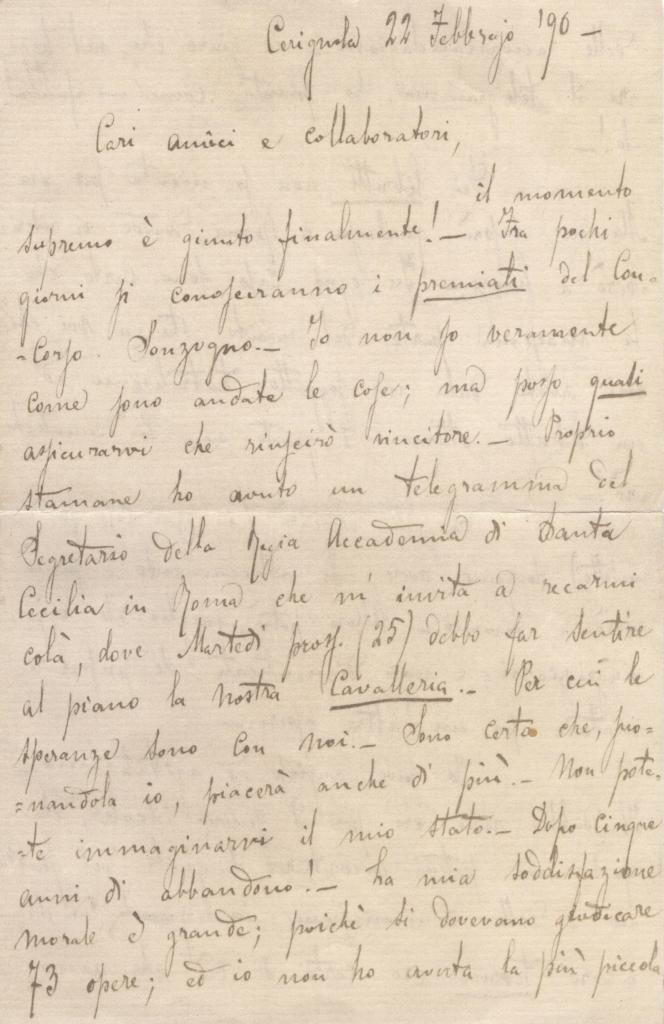 Cerignola 22 Febbrajo '90 –
Cari amici e collaboratori,
il momento
supremo è giunto finalmente! – Fra pochi
giorni si conosceranno i premiati del Con-
-corso Sonzogno. – Io non so veramente
come sono andate le cose; ma posso quasi
assicurarvi che riuscirò vincitore. – Proprio
stamane ho avuto un telegramma del
Segretario della Regia Accademia di Santa
Cecilia in Roma che m'invita a recarmi
colà, dove Martedì pross. (25) debbo far sentire
al piano la nostra Cavalleria. – Per cui le
speranze sono con noi. – Sono certo che, pio=
=nandola io, piacerà anche di più. – Non pote-
-te immaginarvi il mio stato. – Dopo cinque
anni di abbandono! – La mia soddisfazione
morale è grande; poichè si dovevano giudicare
73 opere; ed io non ho avuta la più piccola